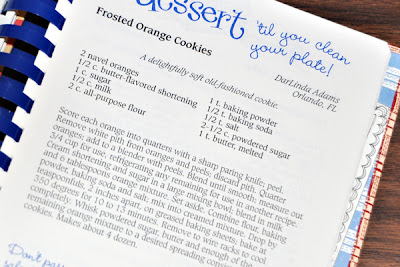 dessert 'til you clean
your plate!
Frosted Orange Cookies
A delightfully soft old-fashioned cookie.
DarLinda Adams
Orlando, FL
2 navel oranges
1/2 c. butter-flavored shortening
1 c. sugar
1/2 c. milk
2 c. all-purpose flour
1 t. baking powder
1/2 t. baking soda
1/2 t. salt
2-1/2 c. powdered sugar
1 t. butter, melted
Score each orange into quarters with a sharp paring knife; peel.
Remove white pith from oranges and peels; discard pith. Quarter
oranges; add to a blender with peels. Blend until smooth; measure out
3/4 cup for use, refrigerating any remaining for use in another recipe.
Cream shortening and sugar in a large mixing bowl; blend in milk
and 6 tablespoons orange mixture. Set aside. Combine flour, baking
powder, baking soda and salt; mix into creamed mixture. Drop by
teaspoonfuls, 2 inches apart, on greased baking sheets; bake at
350 degrees for 10 to 13 minutes. Remove to wire racks to cool
completely. Whisk powdered sugar, butter and enough of the
remaining orange mixture to a desired spreading consistency
cookies. Makes about 4 dozen.
Don't